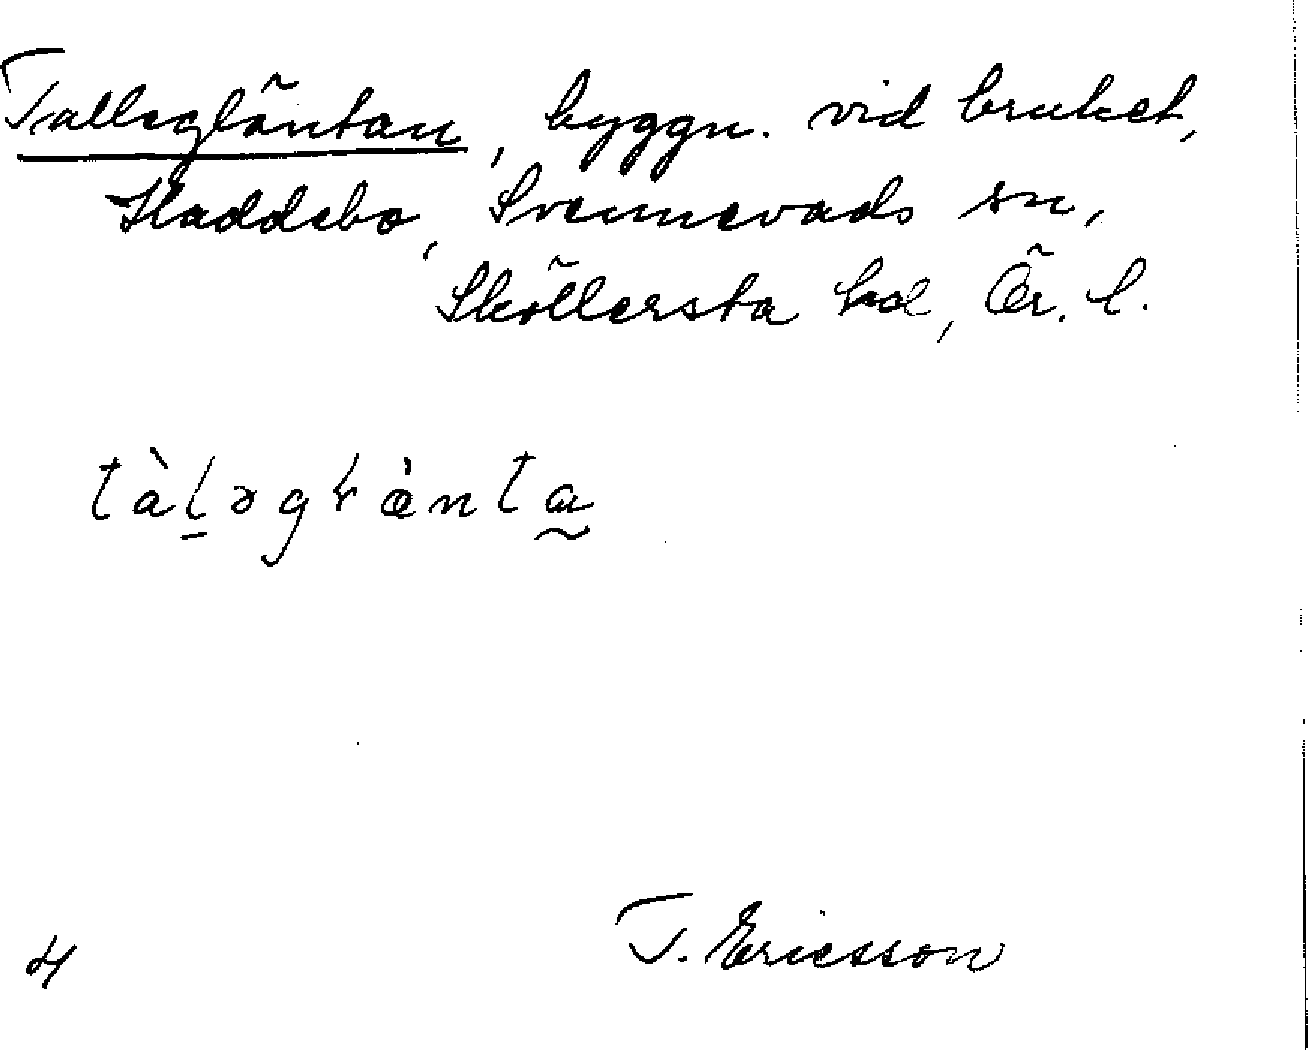 Tallegläntan, byggn. vid bruket,
Haddebo, Svennevads sn,
Sköllersta hd, Ör. l.
tàḻəgɽæ̀nta̰
4
T. Ericsson